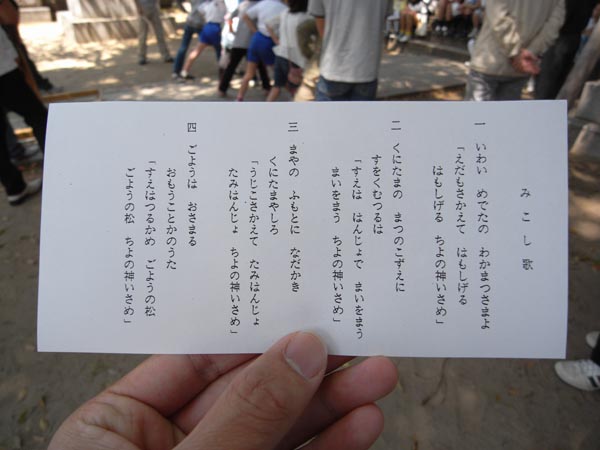 みこし歌
一 いわい めでたの わかまつさまよ
「えだもさかえて はもしげる
はもしげる ちよの神いさめ」
二 くにたまの まつのこずえに
すをくむつるは
「すえは はんじょで まいをまう
まいをまう ちよの神いさめ」
三 まやの ふもとに なだかき
くにたまやしろ
「うじこさかえて たみはんじょ
たみはんじょ ちよの神いさめ」
四 ごようは おさまる
おもうことかのうた
「すえはつるかめ ごようの松
ごようの松 ちよの神いさめ」